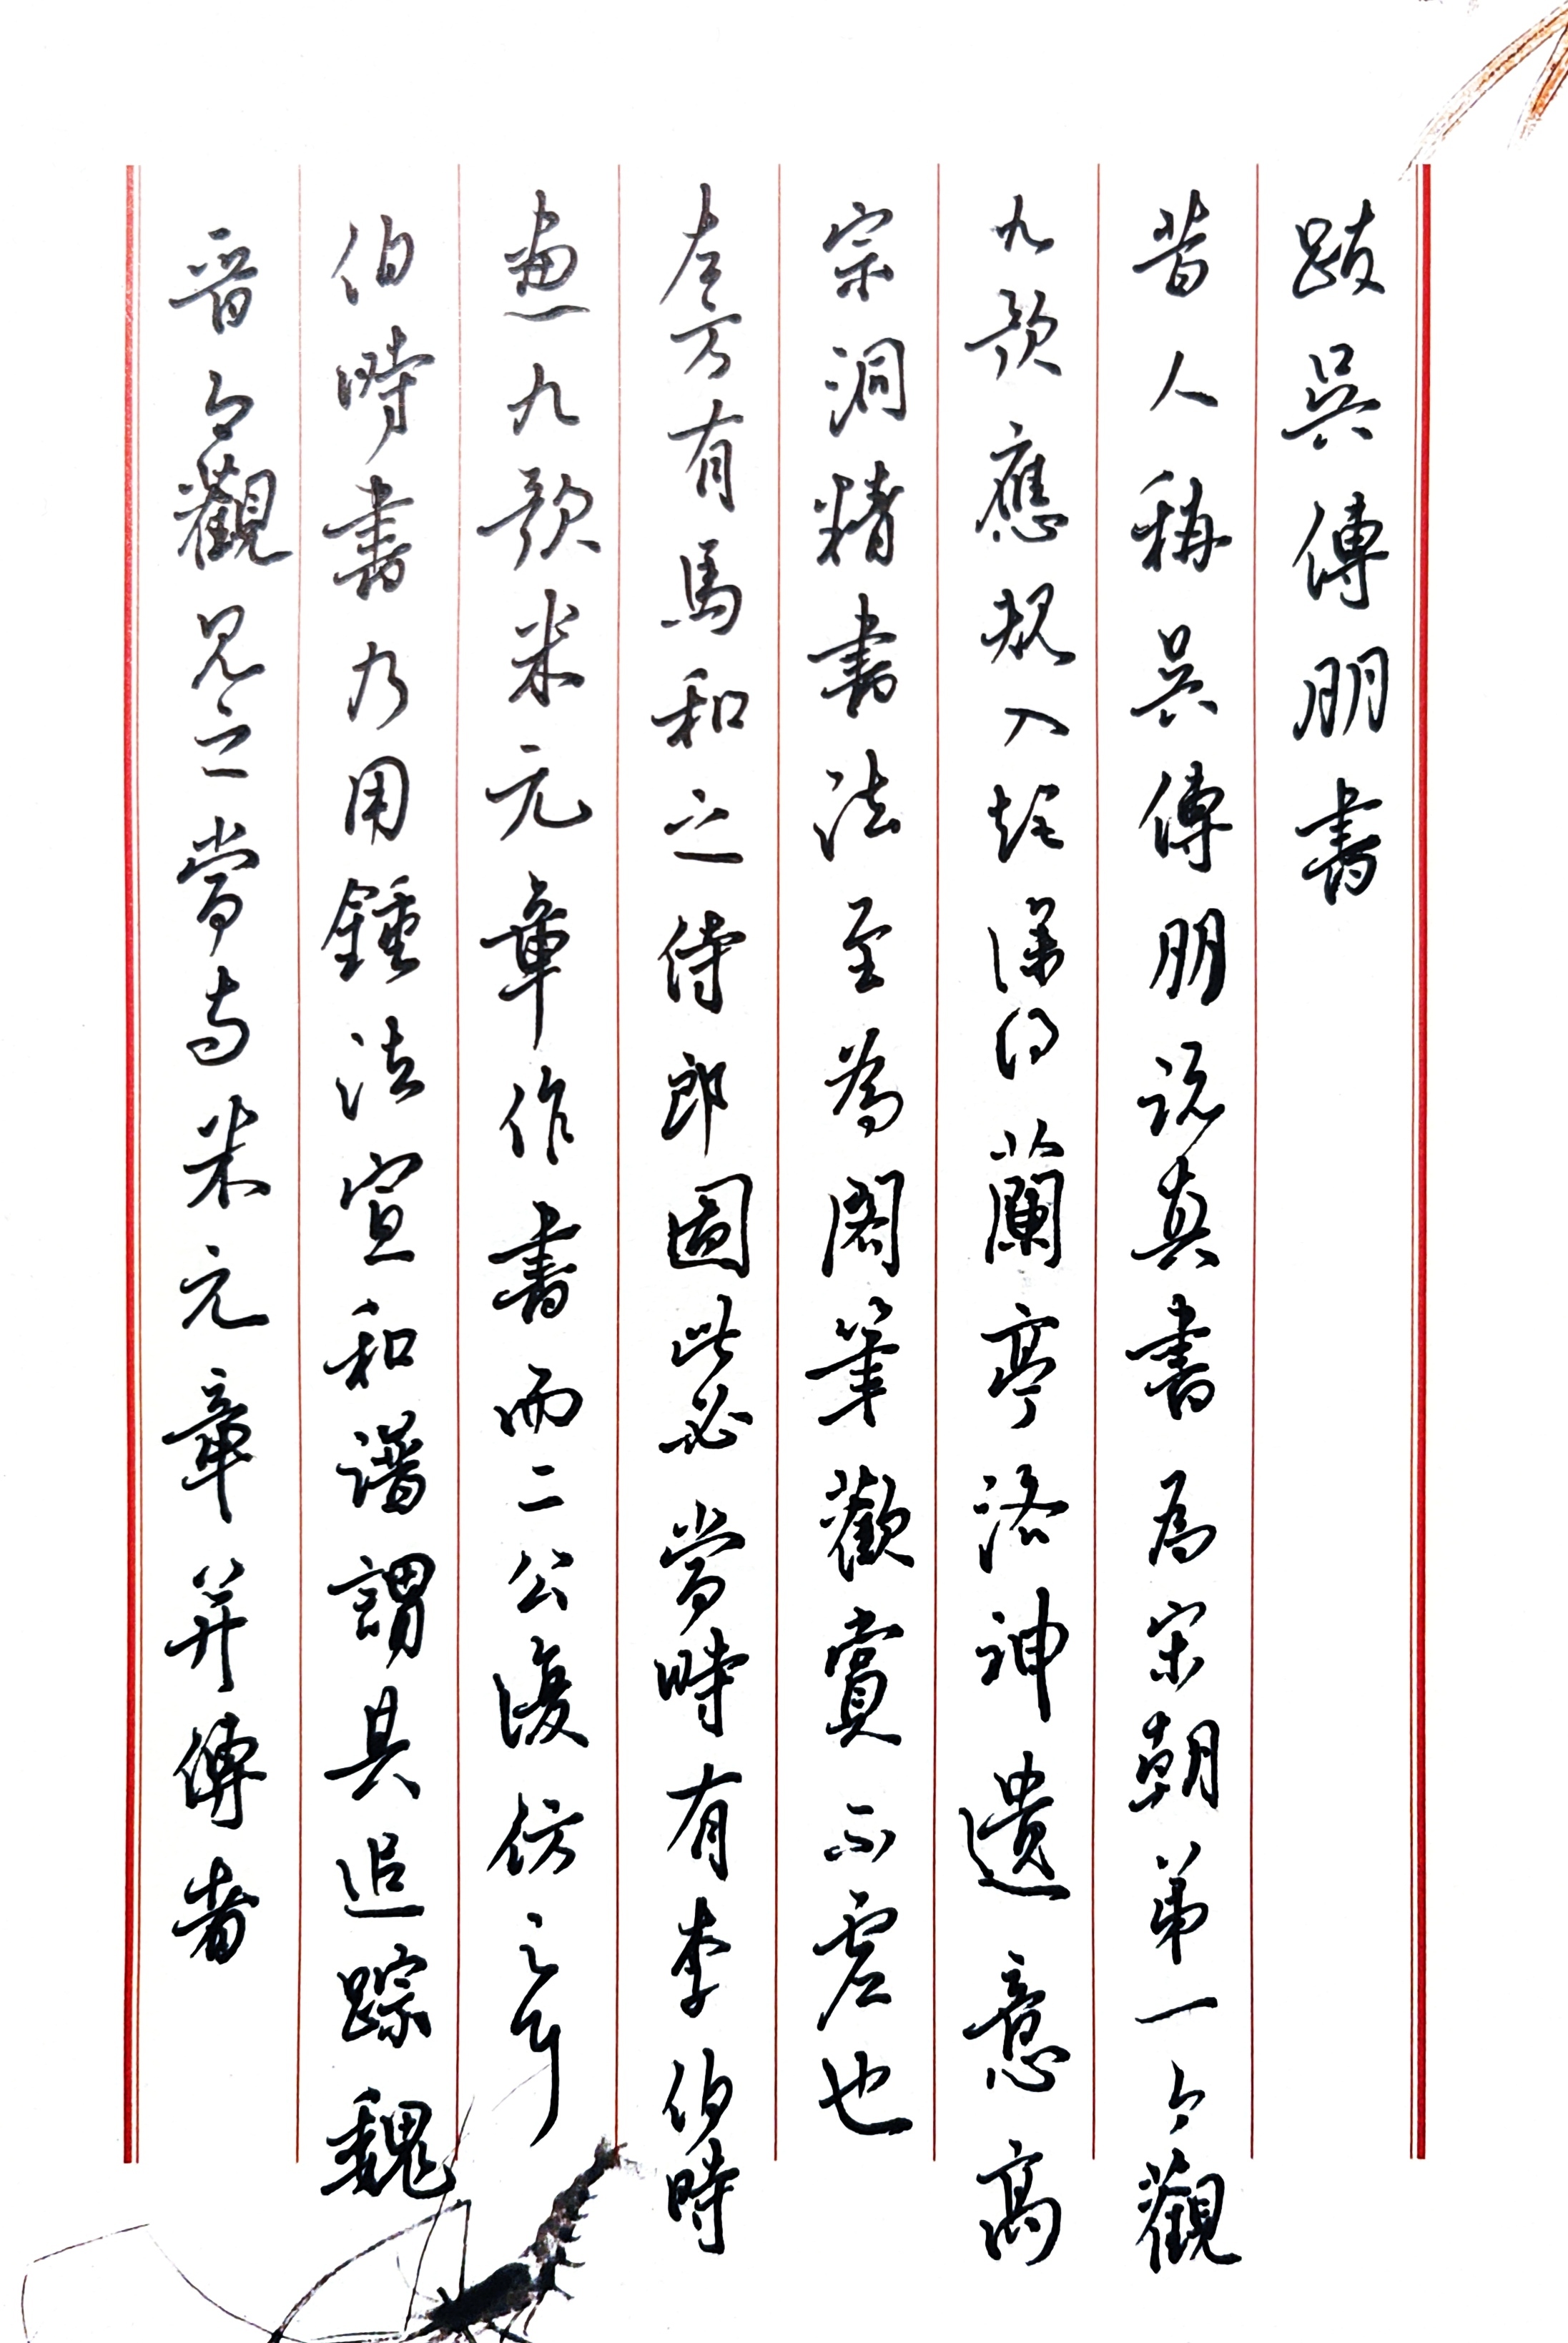 跋吳傅朋書
昔人稱吳傅朋說真書為宋朝第一今觀
九歌應規入矩深得蘭亭洛神遺意高
宗洞精書法至為閣筆歡賞不虛也
左方有馬和之侍郎圖此必當時有李伯時
畫九歌米元章作書而二公復仿之耳
伯時書乃用鍾法宣和譜謂其追踪魏
晉今觀見之當與米元章并傳者